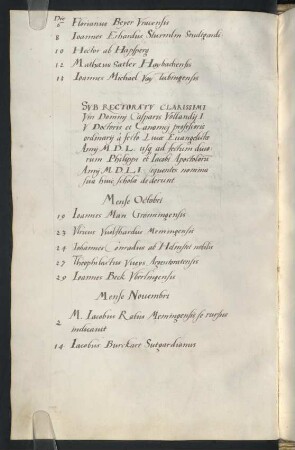 Die
5 Florianus Beyer Vracensis
8 Ioannes Erhardus Sturmlin Studgardi
10 Hector ab Hapsperg
12 Mathæus Satler Haÿbachensis
13 Ioannes Michael Tubingensis
SVB RECTORATV CLARISSIMI
Viri Dominj Casparis Vollandij I.
V Doctoris et Canonuj professoris
ordinarij à festo Lucæ Euangelistæ
Annj M.D.L. usq ad festum duo-
rum Philippi et Iacobi Apostolorum
Annj M.D.LI sequentes nomina
sua huic scholæ dederunt
Mense Octobri
19 Ioannes Mair Groningensis
23 Memingensis
24 Iohannes Conradus ab nobilis
27 Theophilactus Argentoratensis
29 Ioannes Beck Vberlingensis
Mense Novembri
2 M. Iacobus Ratus Memingensis se rursus
indicauit
14 Iacobus Burckart Sutgardianus